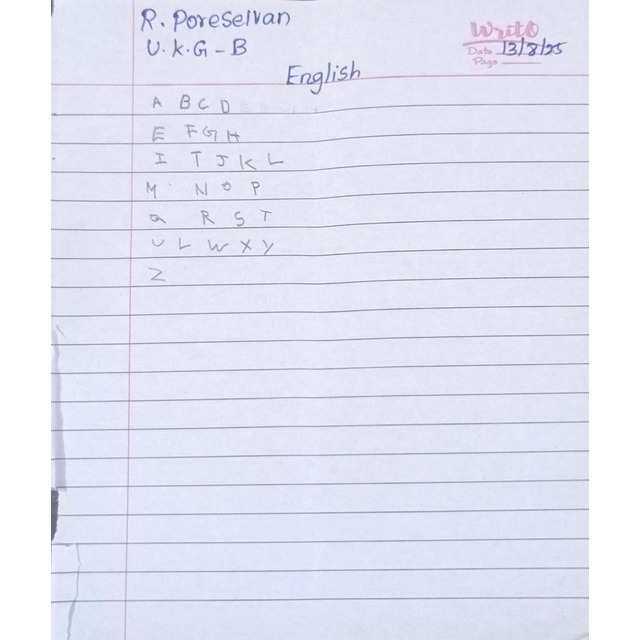 R. Poreselvan
U.K.G - B
Write
Date 13/8/25
Page
English
A B C D
E F G H
I T J K L
M N O P
Q R S T
U L W X Y
Z